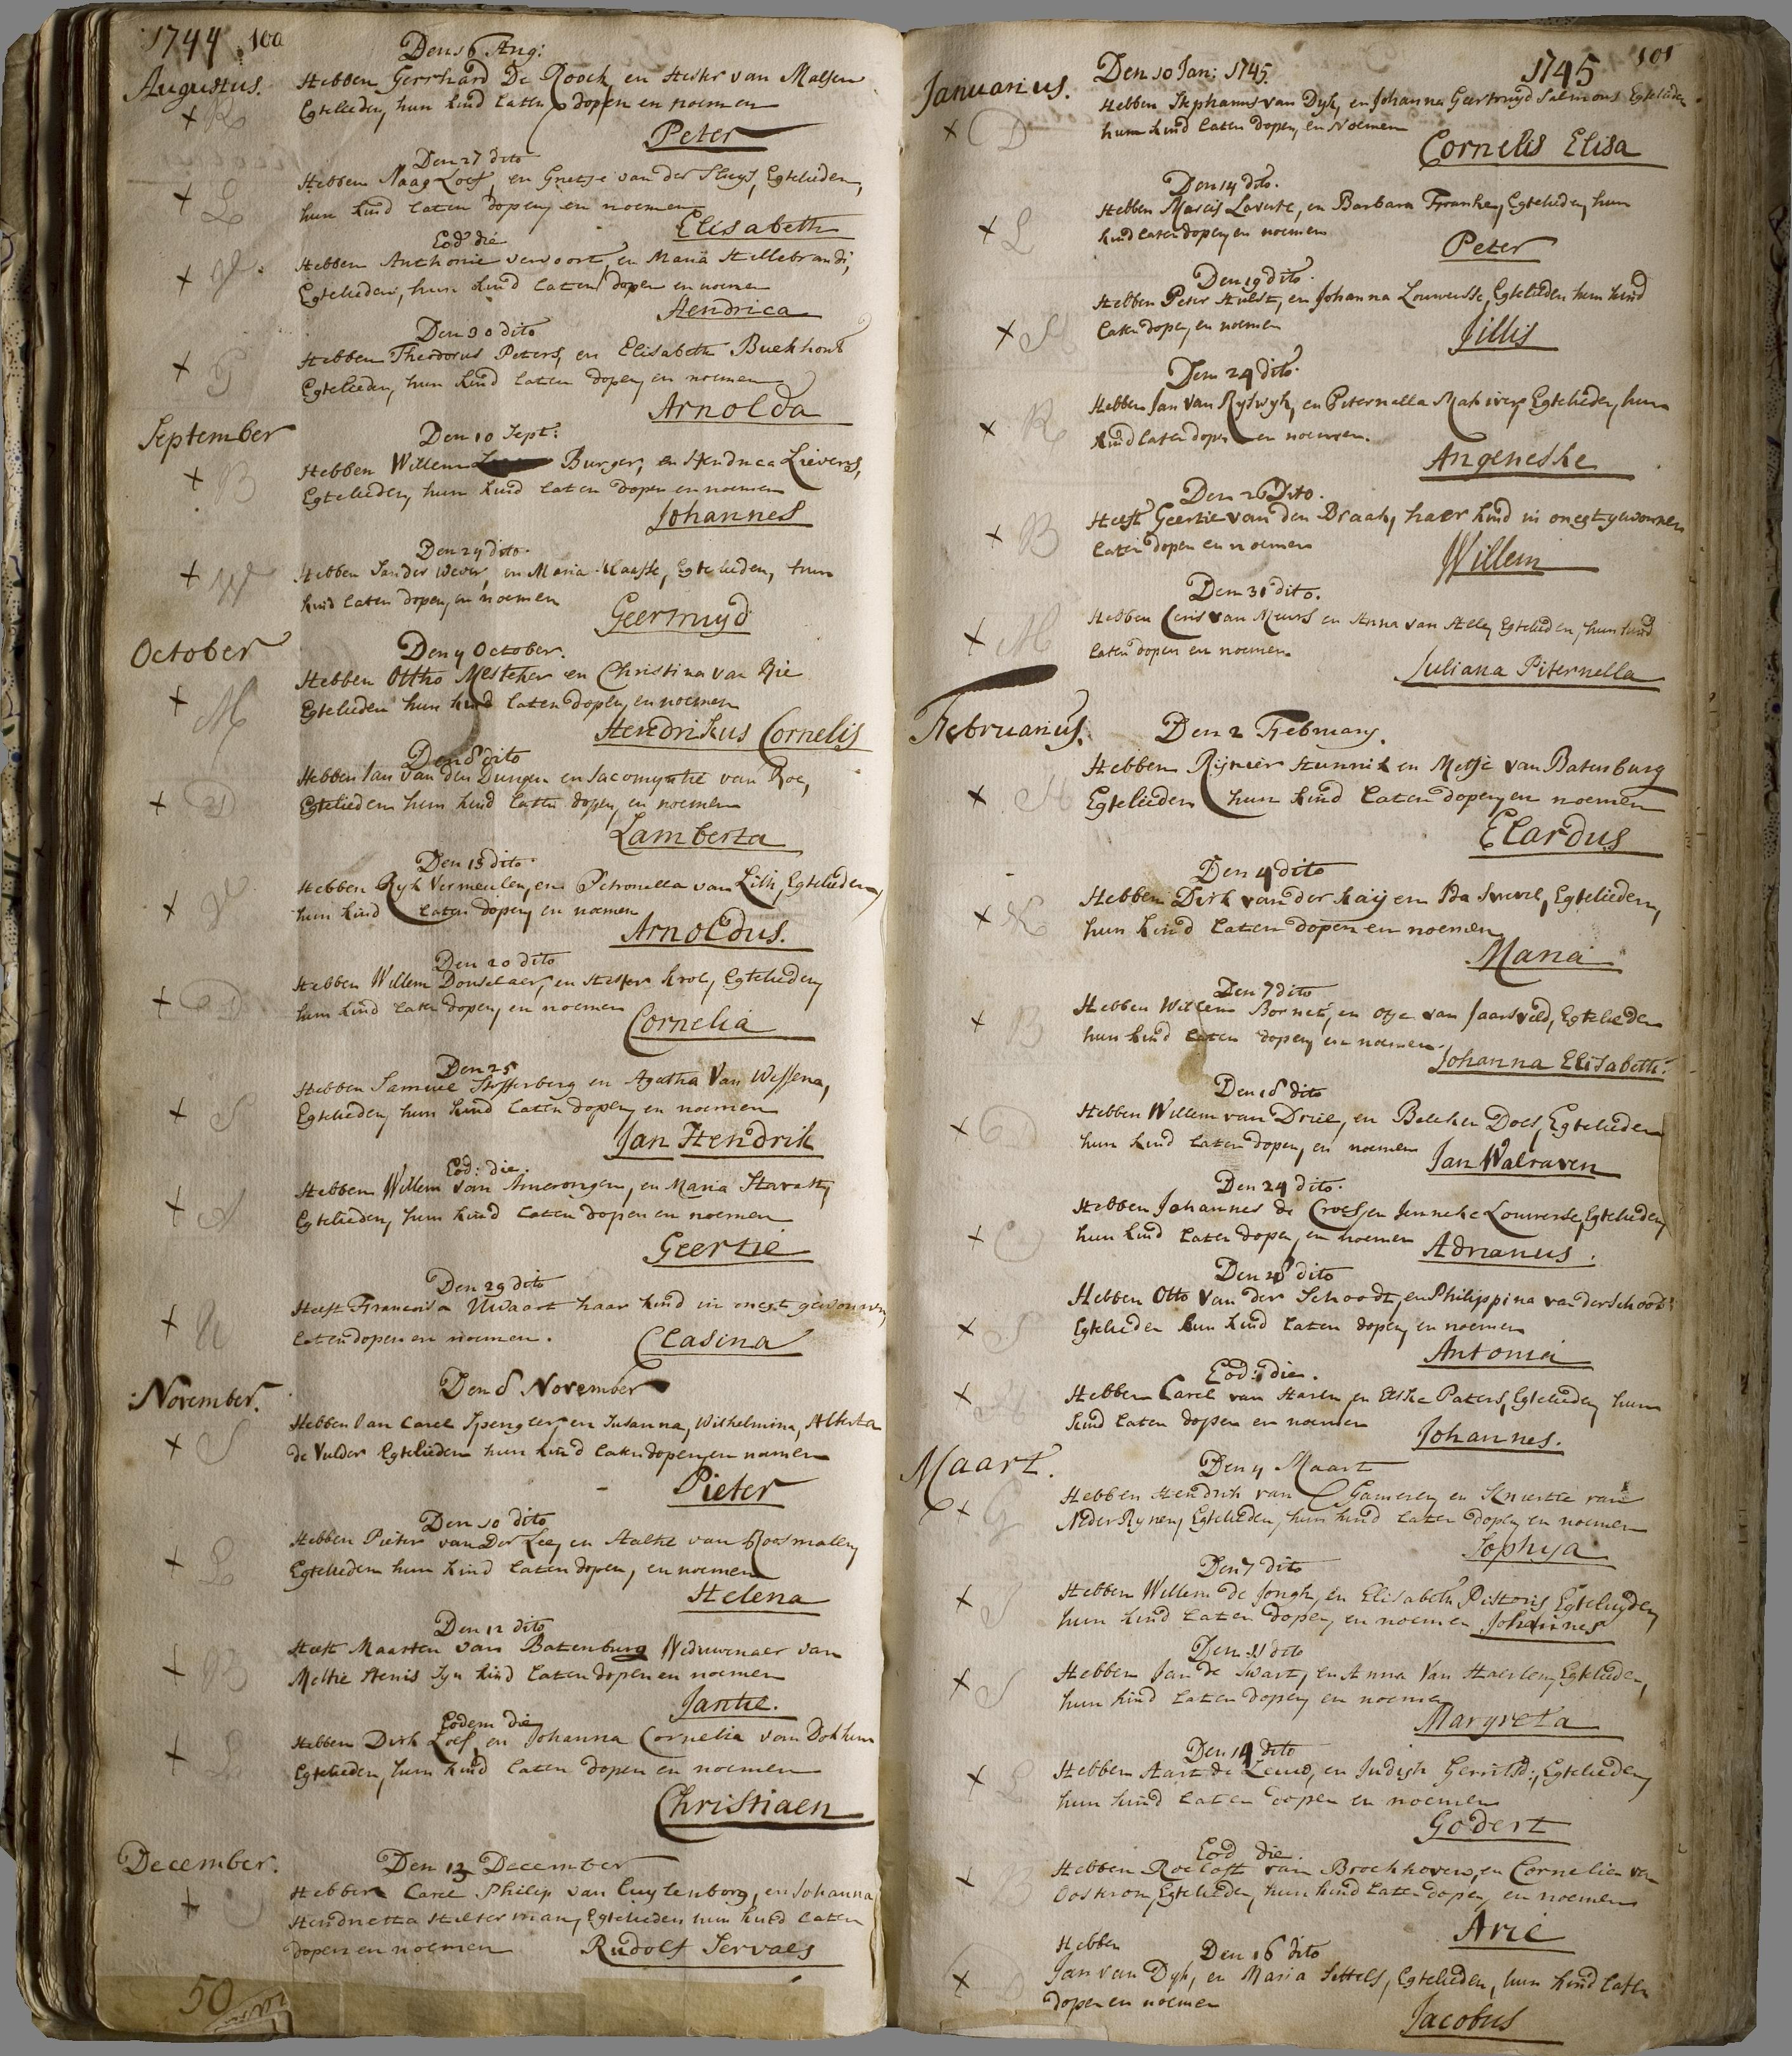 1744 100
Den 16 Aug:
Augustus.
Hebben Gerrhard De Roock en Hester van Malsen
Egtelieden, hun kind laten dopen en noemen
R
Peter
Den 27 dito
Hebben Naag Loef, en Grietje van der Sluys, Egtelieden,
hun kind laten dopen, en noemen
L
Elisabeth
Eod die
Hebben Anthonie vervoort, en Maria Hillebrands,
Egtelieden, hun kind laten dopen en noemen
V
Hendrica
Den 30 dito
Hebben Theodorus Peters, en Elisabeth Buekhout
Egtelieden, hun kind laten dopen, en noemen
P
Arnolda
September
Den 10 Sept:
Hebben Willem Burger, en Hendrica Lievens,
Egtelieden, hun kind laten dopen en noemen
B
Johannes
Den 24 dito.
Hebben Sander Wever, en Maria Klaasse, Egtelieden, hun
kind laten dopen, en noemen
W
Geertruyd
October
Den 4 October.
Hebben Ottho Mesteker en Christina van Rie
Egtelieden hun kind laten dopen, en noemen
M
Hendrikus Cornelis
Den 8 dito
Hebben Jan van den Dungen en Jacomyntie van Roe,
Egtelieden hun kind laten dopen, en noemen
D
Lamberta
Den 15 dito.
Hebben Ryk Vermeulen, en Petronella van Lith, Egtelieden,
hun kind laten dopen, en noemen
V
Arnoldus.
Den 20 dito
Hebben Willem Donselaer, en Hester krol, Egtelieden,
hun kind laten dopen, en noemen
D
Cornelia
Den 25
Hebben Samuel Stofferberg en Agatha Van Wessena,
Egtelieden, hun kind laten dopen, en noemen
S
Jan Hendrik
Eod: die.
Hebben Willem van Amerongen, en Maria
Egtelieden, hun kind laten dopen en noemen
A
Geertie
Den 29 dito
Heeft Francoisa Uwaart haar kind in onegt gewonnen,
laten dopen en noemen.
U
Clasina
November.
Den 8 November
Hebben Jan Carel Spengler, en Susanna, Wilhelmina, Alberta
de Vulder Egtelieden hun kind laten dopen, en namen
S
Pieter
Den 10 dito
Hebben Pieter van Der Lee, en Aaltie van Roosmalen,
Egtelieden hun kind laten dopen, en noemen
L
Helena
Den 12 dito
Heeft Maarten van Batenburg Weduwenaer van
Meltie Henis Syn kind laten dopen en noemen
B
Jantie.
Eodem die
Hebben Dirk Loef, en Johanna Cornelia van Dokkum
Egtelieden, hun kind laten dopen en noemen
L
Christiaen
December.
Den 13 December
Hebben Carel Philip van Cuylenborg, en Johanna
Hendrietta Hilterman, Egtelieden hun kind laten
dopen en noemen Rudolf Servaes
C
50
1745 101
Januarius.
Den 10 Jan: 1745.
Hebben Stephanus van Dyk, en Johanna Geertruyd Salmons Egtelieden
hun kind laten dopen, en Noemen
D
Cornelis Elisa
Den 14 dito.
Hebben Marcis Laverte, en Barbara Franke, Egtelieden, hun
kind laten dopen, en noemen
L
Peter
Den 19 dito.
Hebben Peter Hulst, en Johanna Louwersse, Egtelieden hun kind
laten dopen, en noemen
H
Jillis
Den 24 dito.
Hebben Jan van Ryswyk, en Peternella Egtelieden, hun
kind laten dopen en noemen.
R
Angeneske
Den 26 Dito.
Heeft Geertie van den Braak, haer kind in onegt gewonnen
laten dopen en noemen
B
Willem
Den 31 dito.
Hebben Ceris van Meurs en Anna van Aelle, Egtelieden, hun kind
laten dopen en noemen.
M
Juliana Piternella
Februarius.
Den 2 February.
Hebben Rynier Hunnik en Metje van Batenburg
Egtelieden hun kind laten dopen, en noemen
H
Elardus
Den 4 dito
Hebben Dirk van der kaij en Ida Swevel, Egtelieden,
hun kind laten dopen en noemen
K
Maria
Den 7 dito
Hebben Willem Bornet, en Otje van Jaarsveld, Egtelieden
hun kind laten dopen, en noemen.
B
Johanna Elisabeth.
Den 18 dito
Hebben Willem van Driel, en Beliken Does, Egtelieden
hun kind laten dopen, en noemen Jan Walraven
D
Den 24 dito.
Hebben Johannes de Croes, en Jenneke Louwerse, Egtelieden,
hun kind laten dopen, en noemen Adrianus.
C
Den 28 dito
Hebben Otto Van der Schoodt, en Philippina van der Schoot
Egtelieden hun kind laten dopen, en noemen
S
Antonia
Eod: die.
Hebben Carel van Harlen, en Elske Paters, Egtelieden, hun
kind laten dopen en noemen
H
Johannes.
Maart.
Den 4 Maart
Hebben Hendrik van Gameren, en Knertie van
Neder Rynen, Egtelieden, hun kind laten dopen, en noemen
G
Sophya
Den 7 dito
Hebben Willem de Jongh, en Elisabeth Pistoris, Egtelieyden,
hun kind laten dopen, en noemen Johannes
J
Den 11 dito
Hebben Jan de Swart, en Anna Van Haerlem, Egtelieden,
hun kind laten dopen, en noemen
S
Margreta
Den 14 dito
Hebben Aart de Leeuw, en Judigh Gerritsd:, Egtelieden,
hun kind laten dopen en noemen
L
Godert
Eod die.
Hebben Roeloff van Broekhoven, en Cornelia van
Oostrom, Egtelieden, hun kind laten dopen, en noemen
B
Arie
Hebben
Den 16 dito
Jan van Dyk, en Maria Settels, Egtelieden, hun kind laten
dopen en noemen
D
Jacobus